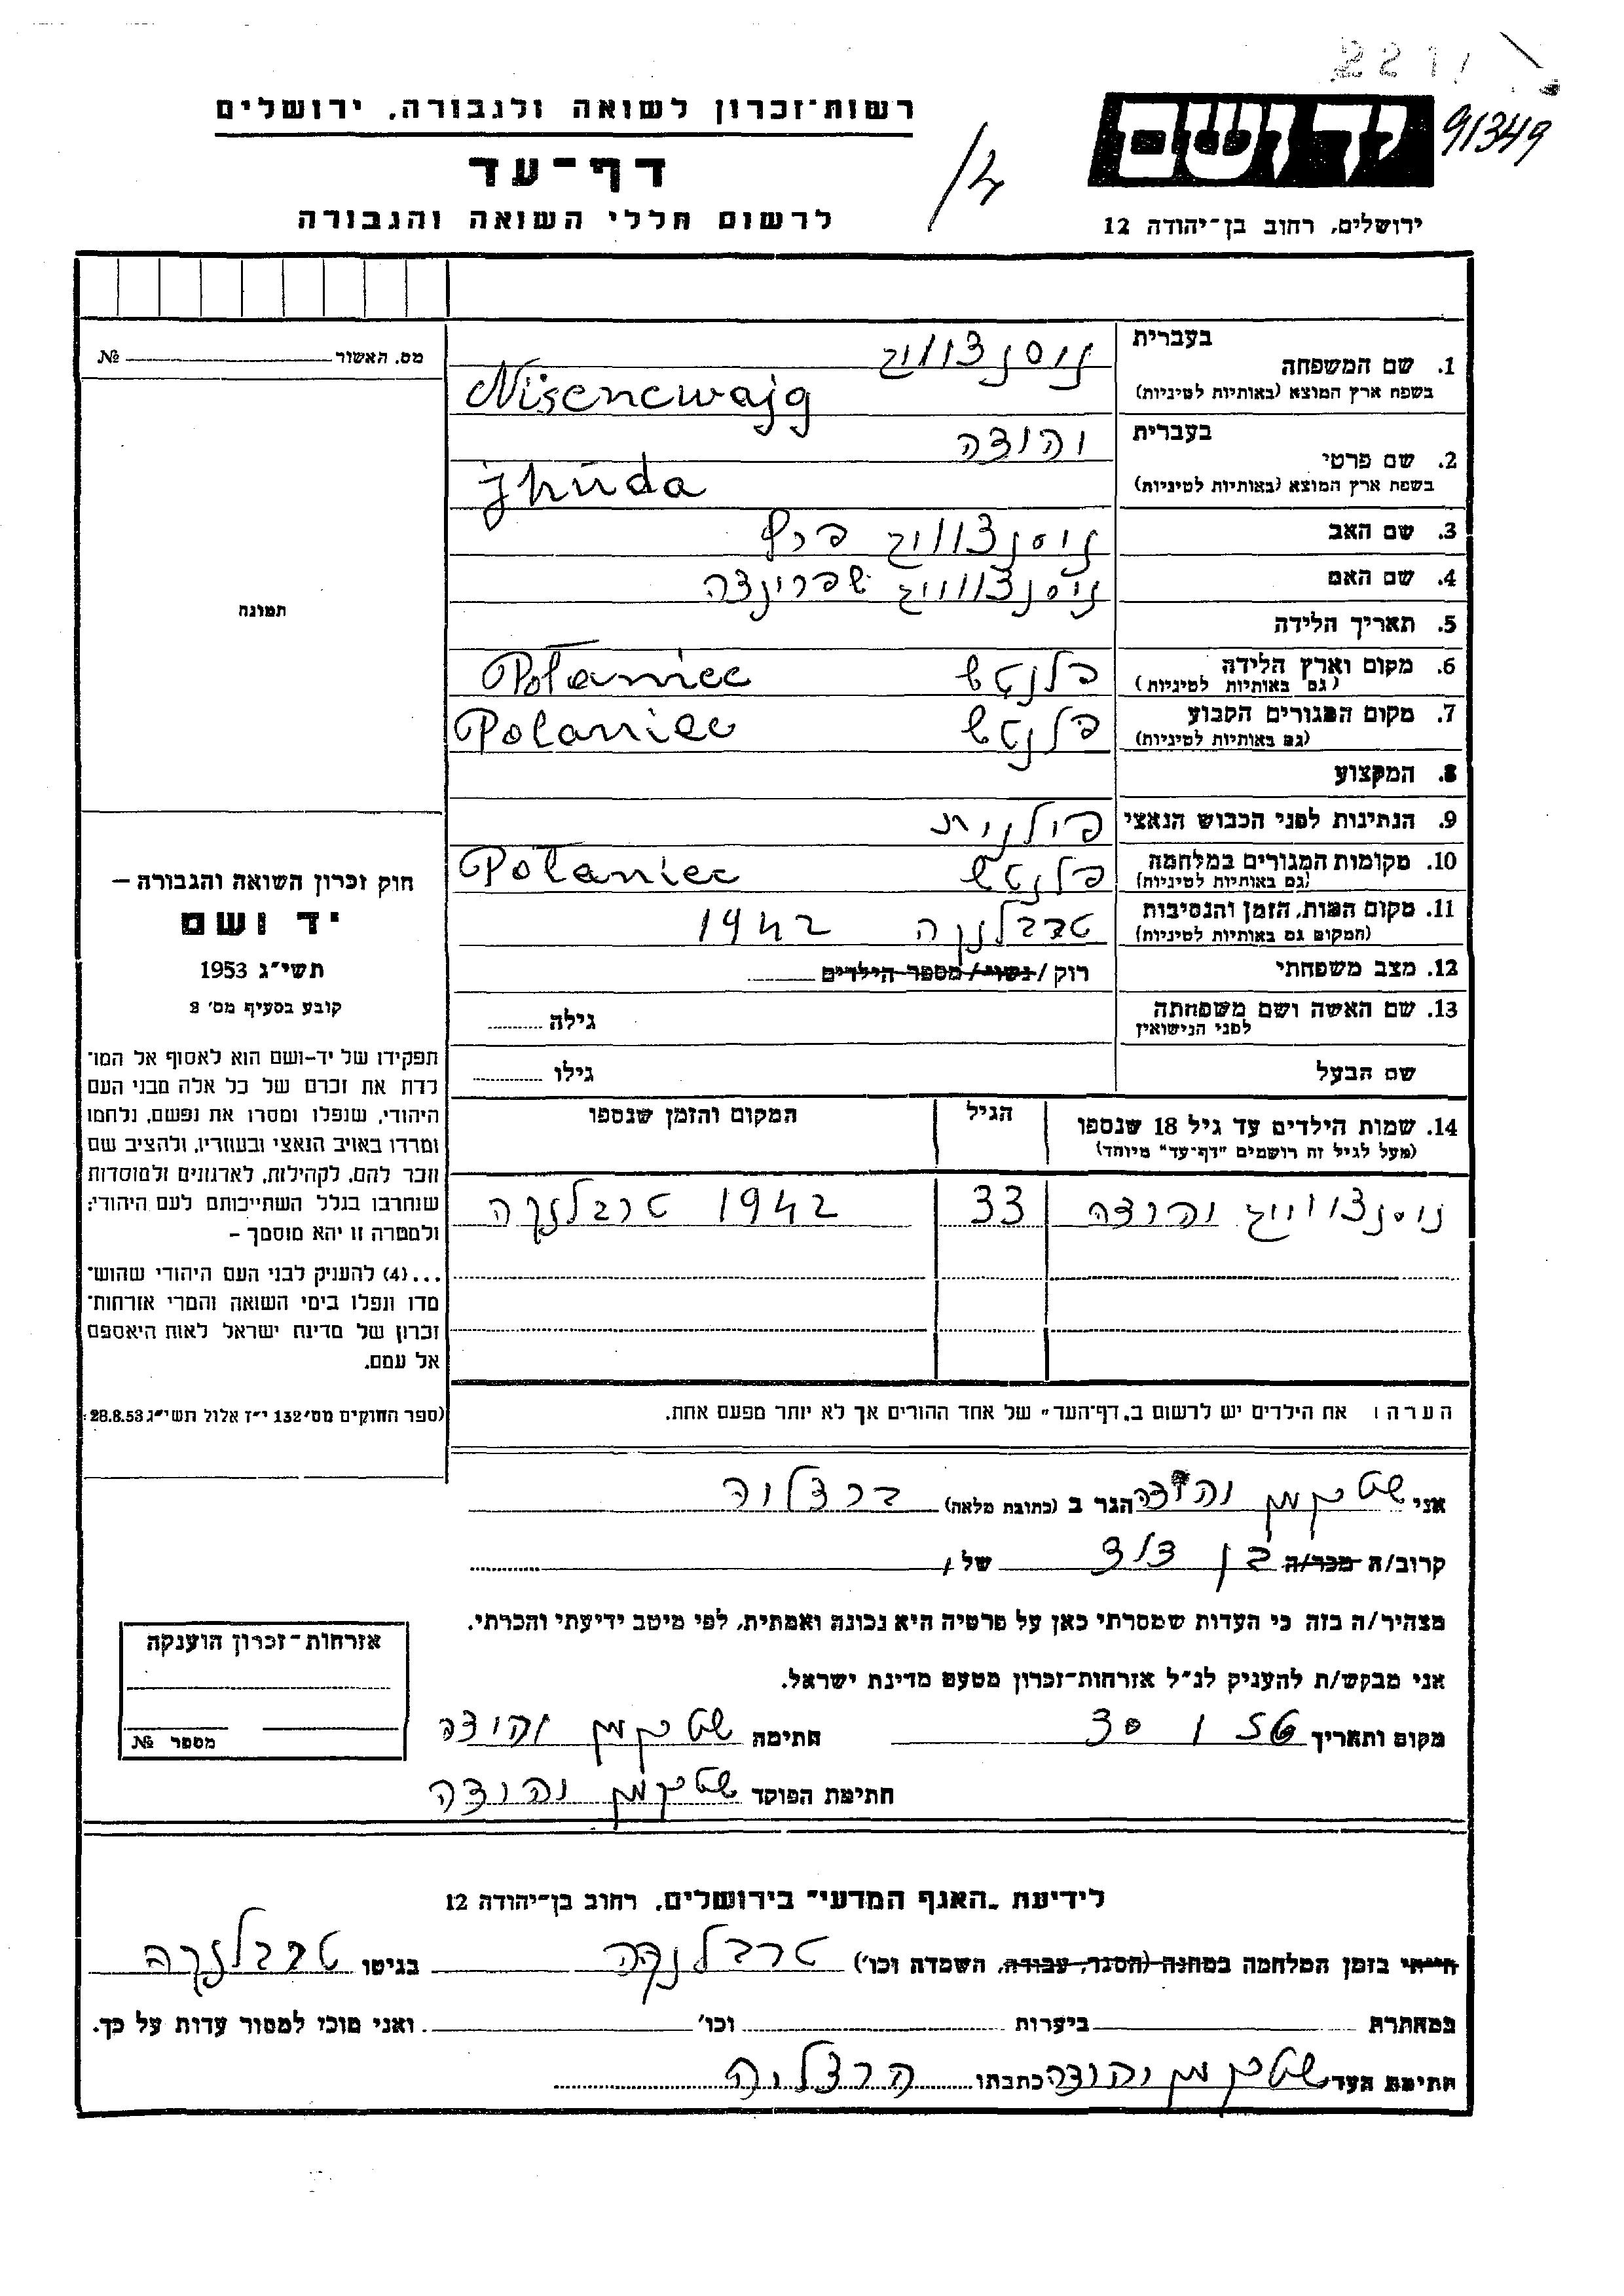 91349
יד ושם
ירושלים, רחוב בן־יהודה 12
רשות־זכרון לשואה ולגבורה, ירושלים
דף־עד
לרשום חללי השואה והגבורה
מס. האשור № 
1. שם המשפחה
בעברית
בשפת ארץ המוצא (באותיות לטיניות)
Nisencwajg
2. שם פרטי
בעברית יהודה
בשפת ארץ המוצא (באותיות לטיניות)
Jhuda
3. שם האב
4. שם האם
5. תאריך הלידה
6. מקום וארץ הלידה
(גם באותיות לטיניות)
Połaniec
7. מקום המגורים הקבוע
(גם באותיות לטיניות)
Polaniec
8. המקצוע
9. הנתינות לפני הכבוש הנאצי פולנית
10. מקומות המגורים במלחמה
(גם באותיות לטיניות)
Połaniec
11. מקום המות, הזמן והנסיבות
(המקום גם באותיות לטיניות)
טרבלנקה 1942
12. מצב משפחתי רוק / נשוי / מספר הילדים
13. שם האשה ושם משפחתה
לפני הנישואין
גילה
שם הבעל גילו
14. שמות הילדים עד גיל 18 שנספו
(מעל לגיל זה רושמים "דף־עד" מיוחד)
הגיל
המקום והזמן שנספו
יהודה 33 1942 טרבלנקה
הערה: את הילדים יש לרשום ב"דף־העד" של אחד ההורים אך לא יותר מפעם אחת.
תמונה
חוק זכרון השואה והגבורה –
יד ושם
תשי"ג 1953
קובע בסעיף מס' 2
תפקידו של יד-ושם הוא לאסוף אל המו־
לדת את זכרם של כל אלה מבני העם
היהודי, שנפלו ומסרו את נפשם, נלחמו
ומרדו באויב הנאצי ובעוזריו, ולהציב שם
וזכר להם, לקהילות, לארגונים ולמוסדות
שנחרבו בגלל השתייכותם לעם היהודי;
ולמטרה זו יהא מוסמך –
...(4) להעניק לבני העם היהודי שהוש־
מדו ונפלו בימי השואה והמרי אזרחות־
זכרון של מדינת ישראל לאות היאספם
אל עמם.
(ספר החוקים מס' 132 י"ז אלול תשי"ג 28.8.53)
אני שטקמן יהודה הגר ב (כתובת מלאה) הרצליה
קרוב/ה מכר/ה בן דוד של
מצהיר/ה בזה כי העדות שמסרתי כאן על פרטיה היא נכונה ואמתית, לפי מיטב ידיעתי והכרתי.
אני מבקש/ת להעניק לנ"ל אזרחות־זכרון מטעם מדינת ישראל.
מקום ותאריך חתימה שטקמן יהודה
חתימת הפוקד שטקמן יהודה
אזרחות־זכרון הוענקה
מספר №
לידיעת "האגף המדעי" בירושלים, רחוב בן־יהודה 12
הייתי בזמן המלחמה במחנה (הסגר, עבודה, השמדה וכו') טרבלנקה בגיטו טרבלנקה
במחתרת ביערות וכו' ואני מוכן למסור עדות על כך.
חתימת העד שטקמן יהודה כתבתו הרצליה